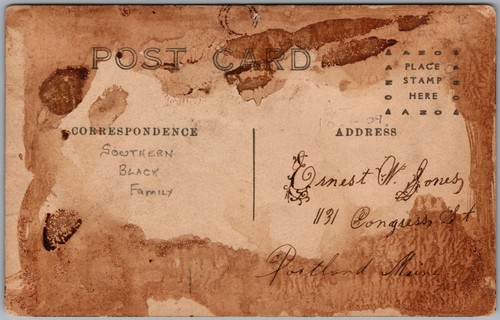 POST CARD
AZO
PLACE
STAMP
HERE
AZO
CORRESPONDENCE
ADDRESS
SOUTHERN
BLACK
FAMILY
Ernest W. Jones
1131 Congress St
Portland Maine